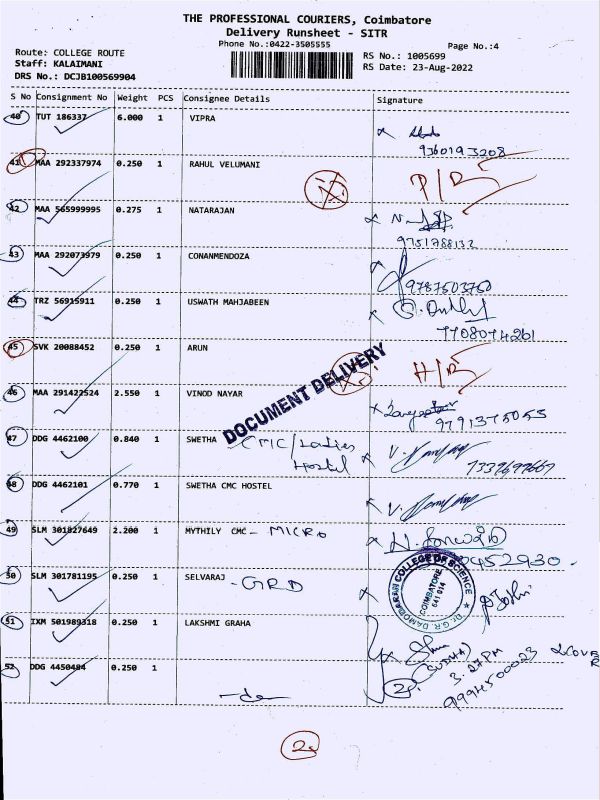 THE PROFESSIONAL COURIERS, Coimbatore
Delivery Runsheet - SITR
Phone No.:0422-3505555
Page No.:4
Route: COLLEGE ROUTE
Staff: KALAIMANI
DRS No.: DCJB100569904
RS No.: 1005699
RS Date: 23-Aug-2022
S No Consignment No Weight PCS Consignee Details Signature
40 TUT 186337 6.000 1 VIPRA
9360193208
41 MAA 292337974 0.250 1 RAHUL VELUMANI
42 MAA 565999995 0.275 1 NATARAJAN
9751788132
43 MAA 292073979 0.250 1 CONANMENDOZA
9787503750
44 TRZ 56915911 0.250 1 USWATH MAHJABEEN
7708074261
45 SVK 20088452 0.250 1 ARUN
DOCUMENT DELIVERY
46 MAA 291422524 2.550 1 VINOD NAYAR
9791375055
47 DDG 4462100 0.840 1 SWETHA CMC/Ladies
Hostel
48 DDG 4462101 0.770 1 SWETHA CMC HOSTEL
49 SLM 301827649 2.200 1 MYTHILY CMC - MICRO
50 SLM 301781195 0.250 1 SELVARAJ - GRD
Dr. G.R. DAMODARAN COLLEGE OF SCIENCE
COIMBATORE
641 014
51 IXM 501989318 0.250 1 LAKSHMI GRAHA
(SUDHA)
3.27PM
9994500023
52 DDG 4450484 0.250 1
2